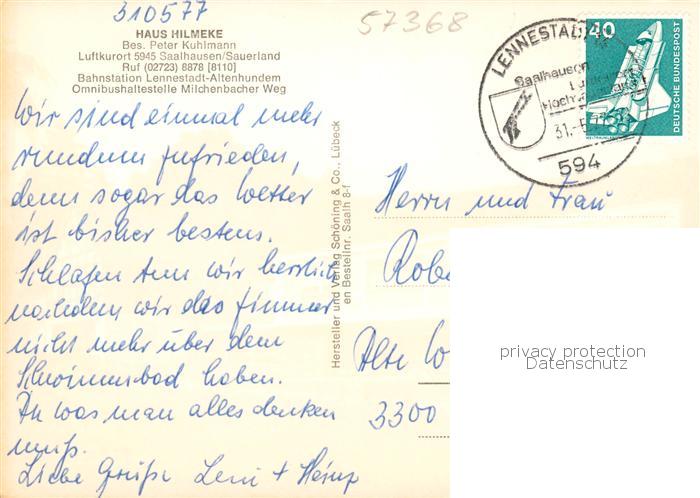 310577
57368
HAUS HILMEKE
Bes. Peter Kuhlmann
Luftkurort 5945 Saalhausen/Sauerland
Ruf (02723) 8878 [8110]
Bahnstation Lennestadt-Altenhundem
Omnibushaltestelle Milchenbacher Weg
LENNESTADT
Saalhausen
31.-5.
594
40
DEUTSCHE BUNDESPOST
Wir sind einmal mehr
rundum zufrieden,
denn sogar das Wetter
ist bisher bestens.
Schlafen tun wir herrlich
nachdem wir das Zimmer
nicht mehr über dem
Schwimmbad haben.
An was man alles denken
muß.
Liebe Grüße Leni + Heinz
Hersteller und Verlag Schöning & Co., Lübeck
en Bestellnr. Saalh 8-f
Herrn und Frau
Robe
Alte W
3300
privacy protection
Datenschutz